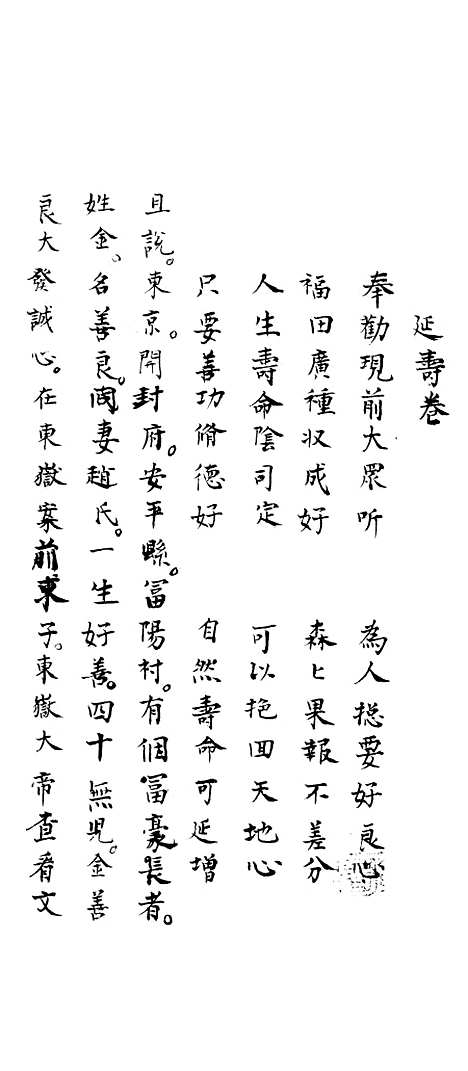 延壽卷
奉勸現前大眾听 為人捴要好良心
福田廣種収成好 森〻果報不差分
人生壽命陰司定 可以挽回天地心
只要善功脩德好 自然壽命可延增
且說。東京。開封府。安平縣。冨陽村。有個冨豪長者。
姓金、名善良。閤妻趙氏。一生好善。四十無児。金善
良大發誠心。在東嶽案前求子。東嶽大帝查看文